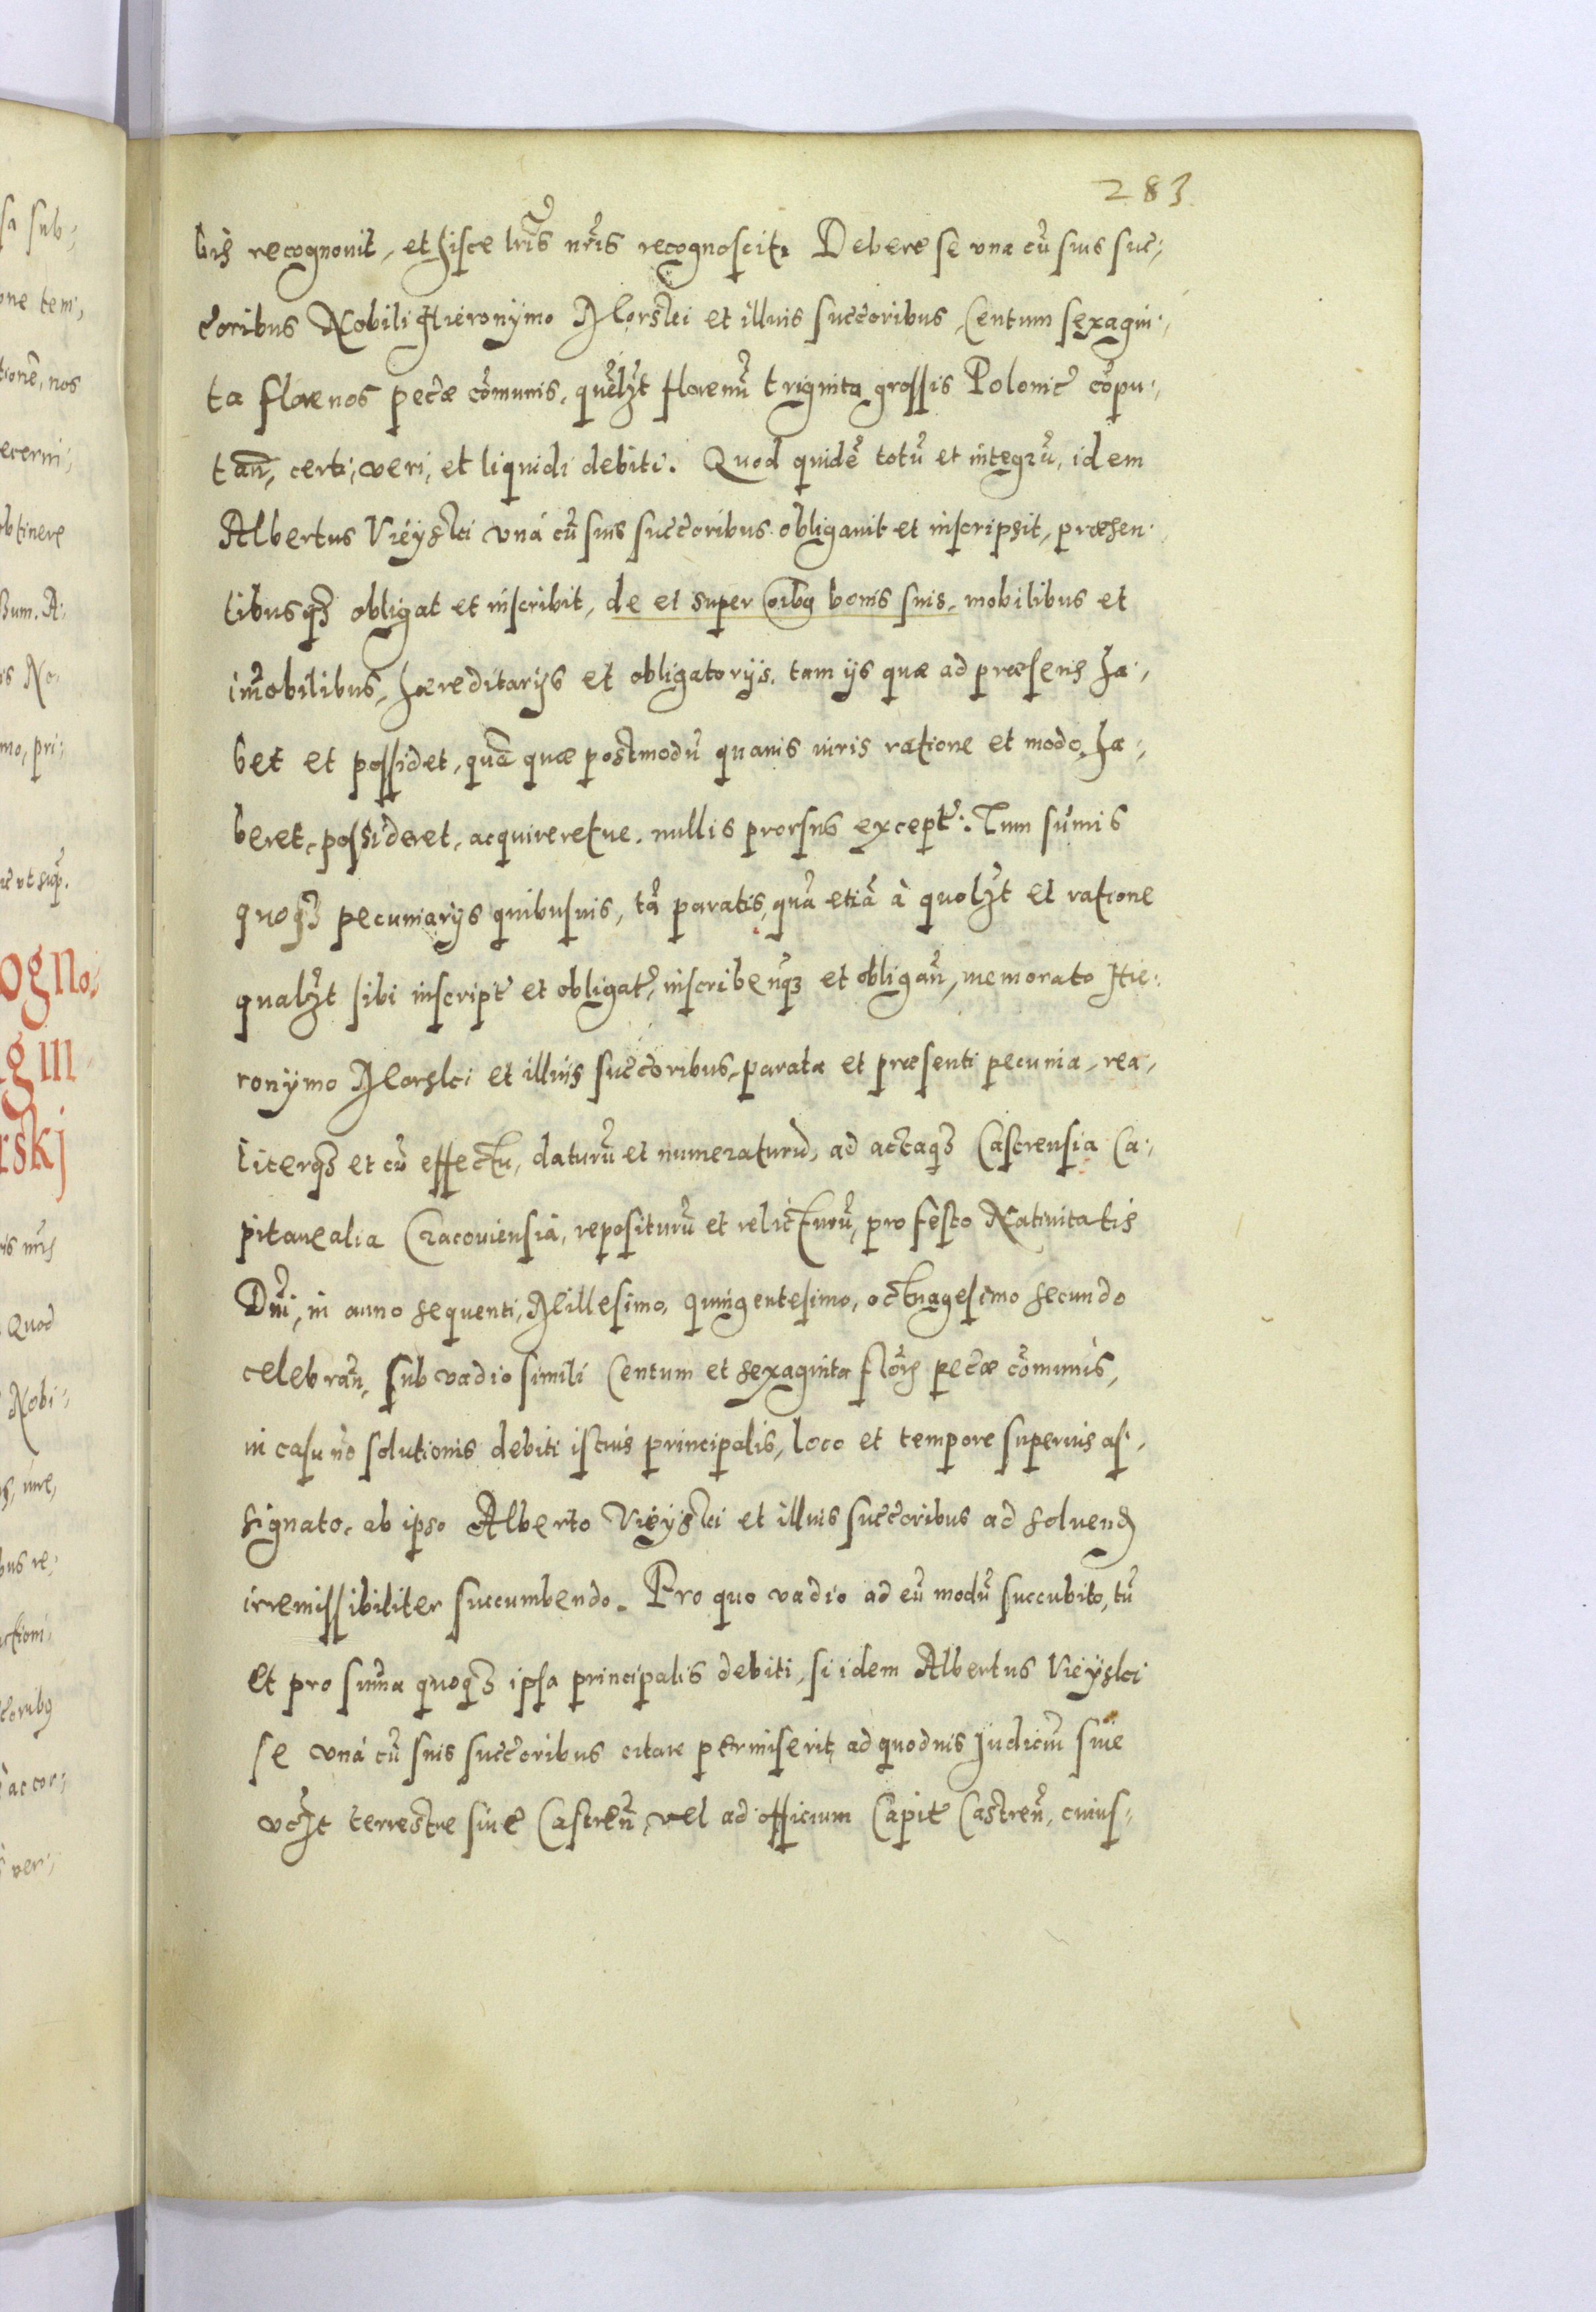 283
bis recognouit, et hisce lr̃is nr̃is recognoscit. Debere se vna cũ suis suc-
c̃oribus Nobili Hieronymo Morski et illius succ̃oribus, Centum sexagin-
ta florenos pec̃ae cõmunis, quẽlꝫt florenũ triginta grossis Polonic̃ cõpu-
tan̄, certi, veri, et liquidi debiti. Quod quidẽ totũ et integrũ, idem
Albertus Vieyski vná cũ suis succ̃oribus obligauit et inscripsit, præsen-
tibusqꝫ obligat et inscribit, de et super oı̃bꝯ bonis suis, mobilibus et
im̃obilibus, hæreditarijs et obligatorijs, tam ijs quæ ad præsens ha-
bet et possidet, quã quæ postmodũ quauis iuris ratione et modo ha-
beret, possideret, acquireretue, nullis prorsus except̃. Tum sum̃is
quoqꝫ pecuniarijs quibusuis, tã paratis, quã etiã à quolꝫt et ratione
qualꝫt sibi inscript̃ et obligat̃, inscriben̄qꝫ et obligan̄, memorato Hie-
ronymo Morski et illius succ̃oribus, parata et præsenti pecunia, rea-
literqꝫ et cũ effectu, daturũ et numeraturũ, ad actaqꝫ Castrensia Ca-
pitanealia Cracouiensia, repositurũ et relicturũ, pro festo Natiuitatis
Dñi, in anno sequenti, Millesimo, quingentesimo, octuagesimo secundo
celebran̄, sub vadio simili Centum et sexaginta flõr̃ pec̃æ cõmunis,
in casu nõ solutionis debiti istius principalis, loco et tempore superius as-
signato, ab ipso Alberto Vieyski et illius succ̃oribus ad soluend̃
irremissibiliter succumbendo. Pro quo vadio ad eũ modũ succubito, tũ
et pro sum̃a quoqꝫ ipsa principalis debiti, si idem Albertus Vieyski
se vná cũ suis succ̃oribus citare permiserit, ad quoduis Iudiciũ siue
vtꝫt terrestre siue Castren̄, vel ad officium Capit̃ Castren̄, cuius-